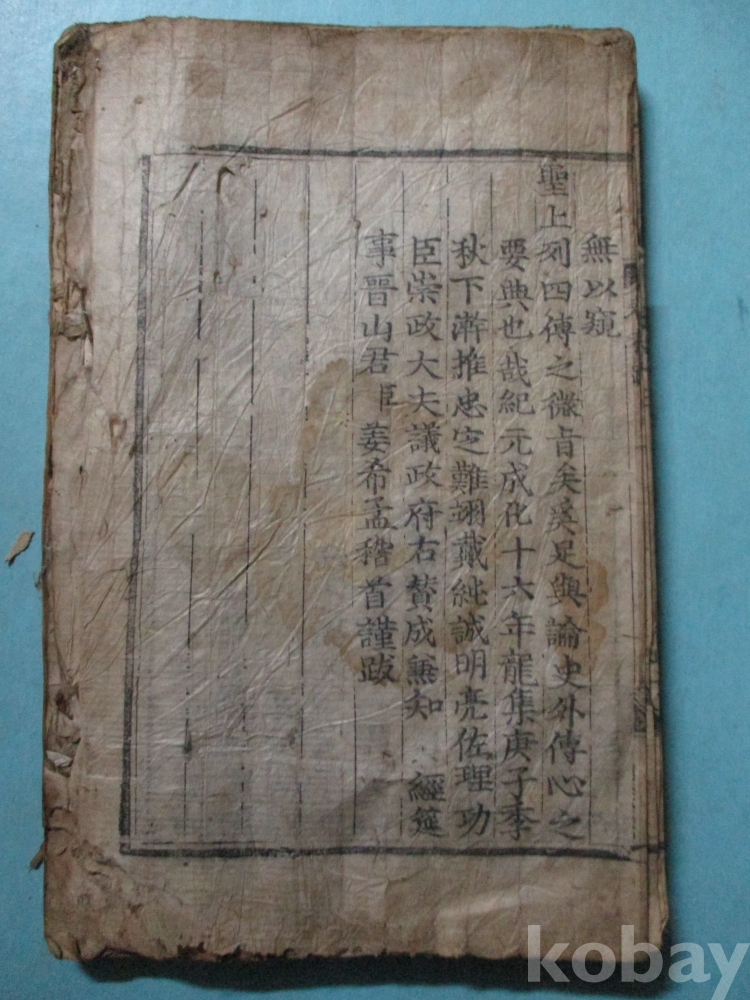 無以窺
聖上列四傳之微旨矣奚足與論史外傳心之
要典也哉紀元成化十六年龍集庚子季
秋下澣推忠定難翊戴純誠明亮佐理功
臣崇政大夫議政府右贊成兼知 經筵
事晉山君臣姜希孟稽首謹跋
kobay